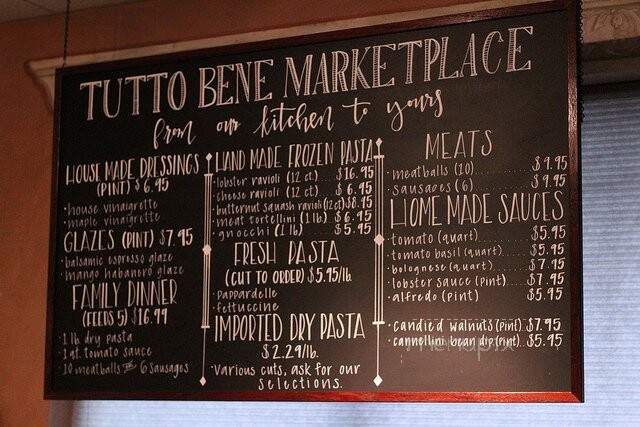 TUTTO BENE MARKETPLACE
from our kitchen to yours
HOUSE MADE DRESSINGS
(PINT) $6.95
·house vinaigrette
·maple vinaigrette
GLAZES (PINT) $7.95
·balsamic espresso glaze
·mango habanero glaze
FAMILY DINNER
(FEEDS 5) $16.99
·1 lb. dry pasta
·1 qt. tomato sauce
·10 meatballs OR 6 sausages
HAND MADE FROZEN PASTA
·lobster ravioli (12 ct.)....$16.95
·cheese ravioli (12 ct.)....$6.95
·butternut squash ravioli (12 ct.) $8.95
·meat tortellini (1 lb.)..$6.95
·gnocchi (1 lb.)........$5.95
FRESH PASTA
(CUT TO ORDER) $5.95/lb.
·pappardelle
·fettuccine
IMPORTED DRY PASTA
$2.29/lb.
·various cuts, ask for our
selections.
MEATS
·meatballs (10)..........$9.95
·sausages (6)..........$9.95
HOME MADE SAUCES
·tomato (quart)..........$5.95
·tomato basil (quart)......$5.95
·bolognese (quart)........$7.95
·lobster sauce (pint)......$7.95
·alfredo (pint)..........$5.95
·candied walnuts (pint).$7.95
·cannellini bean dip (pint).$5.95
menupix